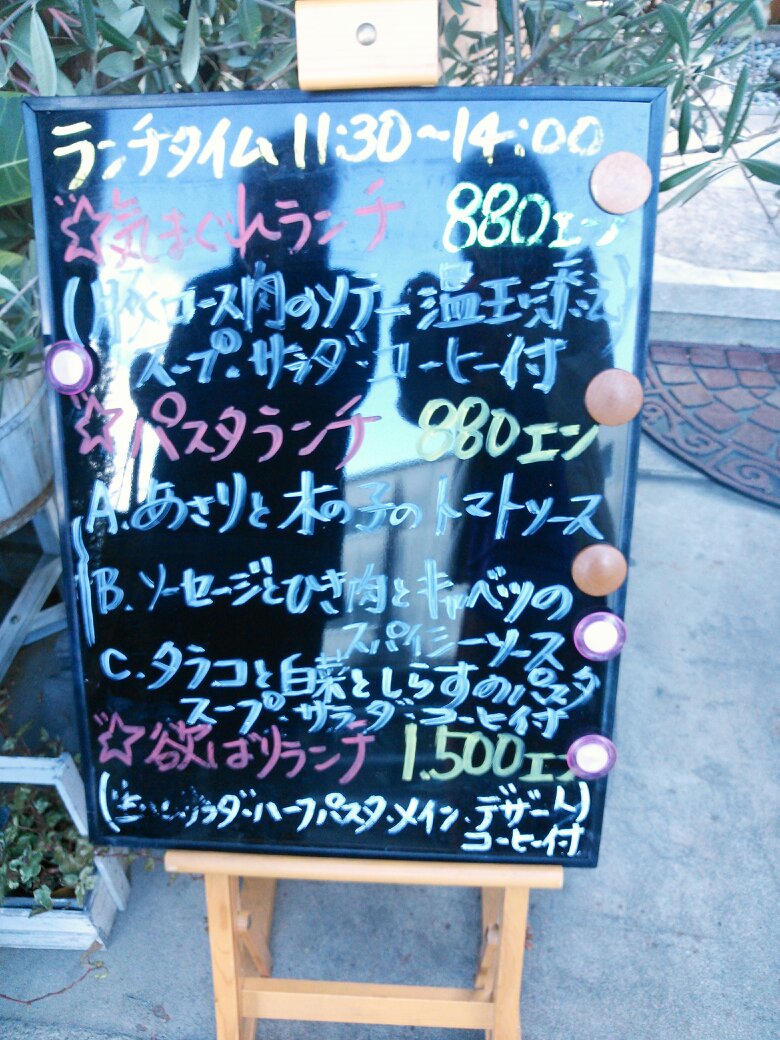 ランチタイム 11:30～14:00
☆気まぐれランチ 880エン
(豚ロース肉のソテー温玉添え)
スープ・サラダ・コーヒー付
☆パスタランチ 880エン
A. あさりと木の子のトマトソース
B. ソーセージとひき肉とキャベツの
スパイシーソース
C. タラコと白菜としらすのパスタ
スープ・サラダ・コーヒー付
☆欲ばりランチ 1.500エン
サラダ・ハーフパスタ・メイン・デザート)
コーヒー付